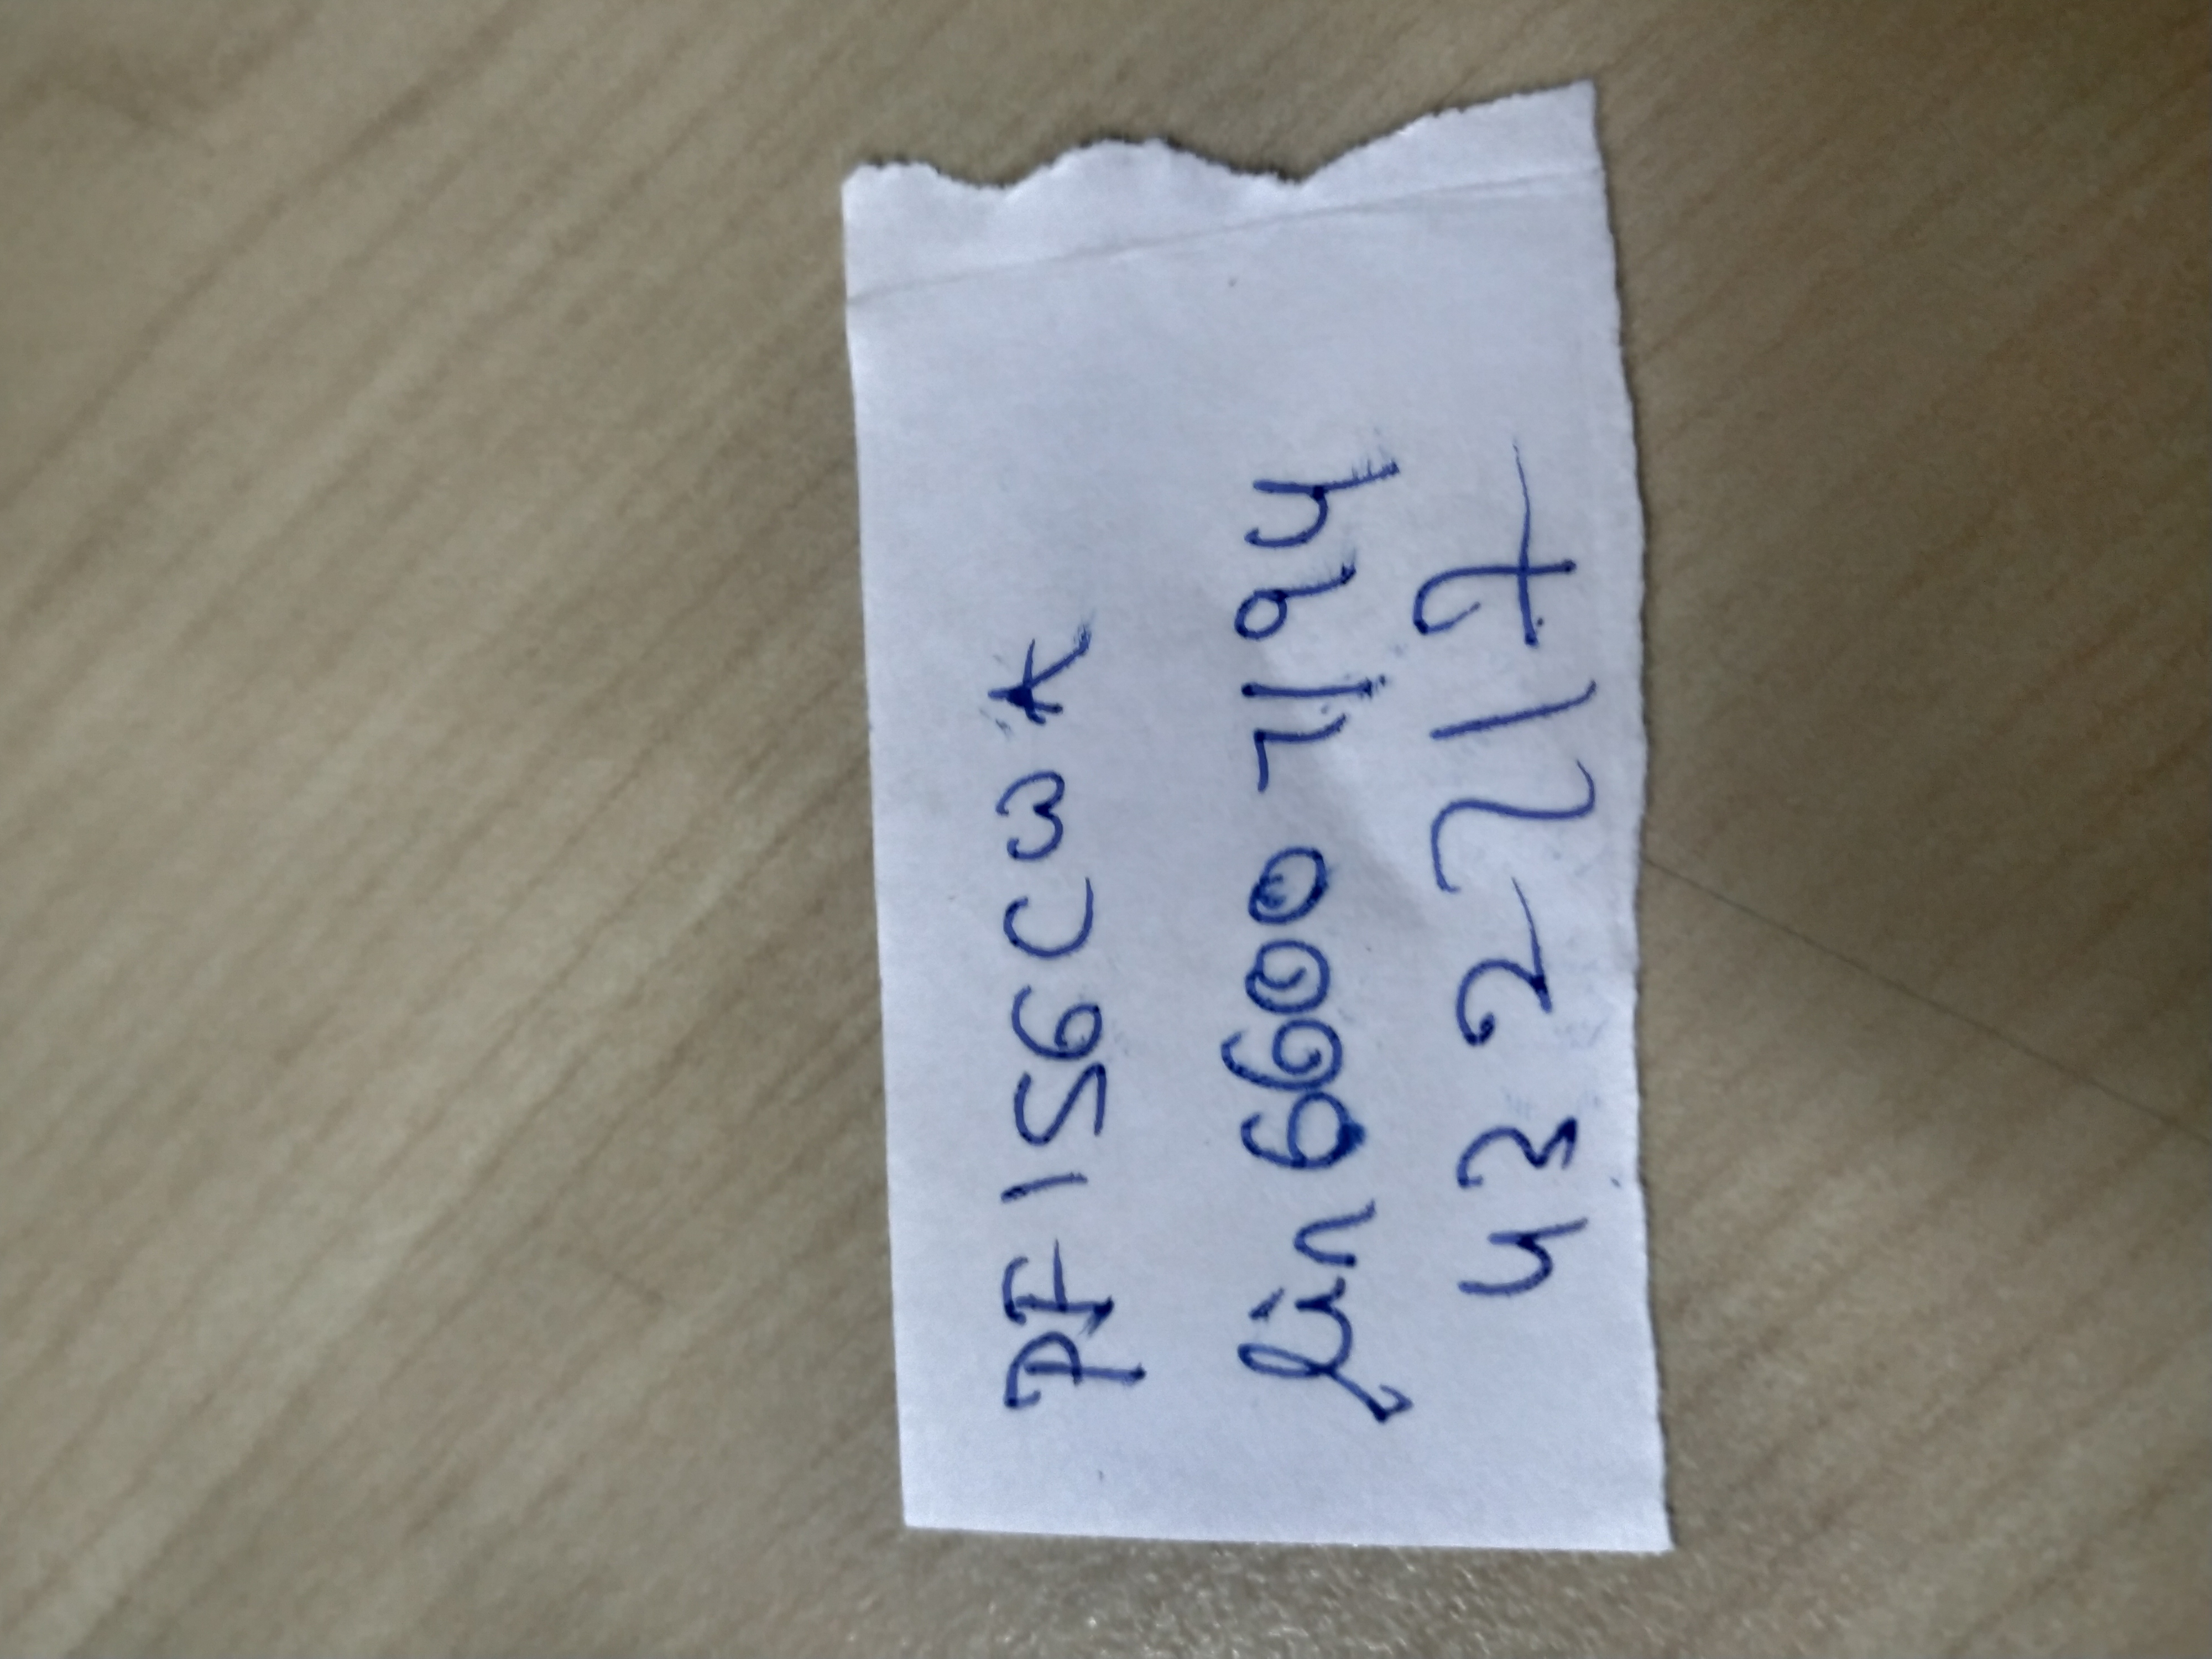 PF156CWA
lin66007194
432717